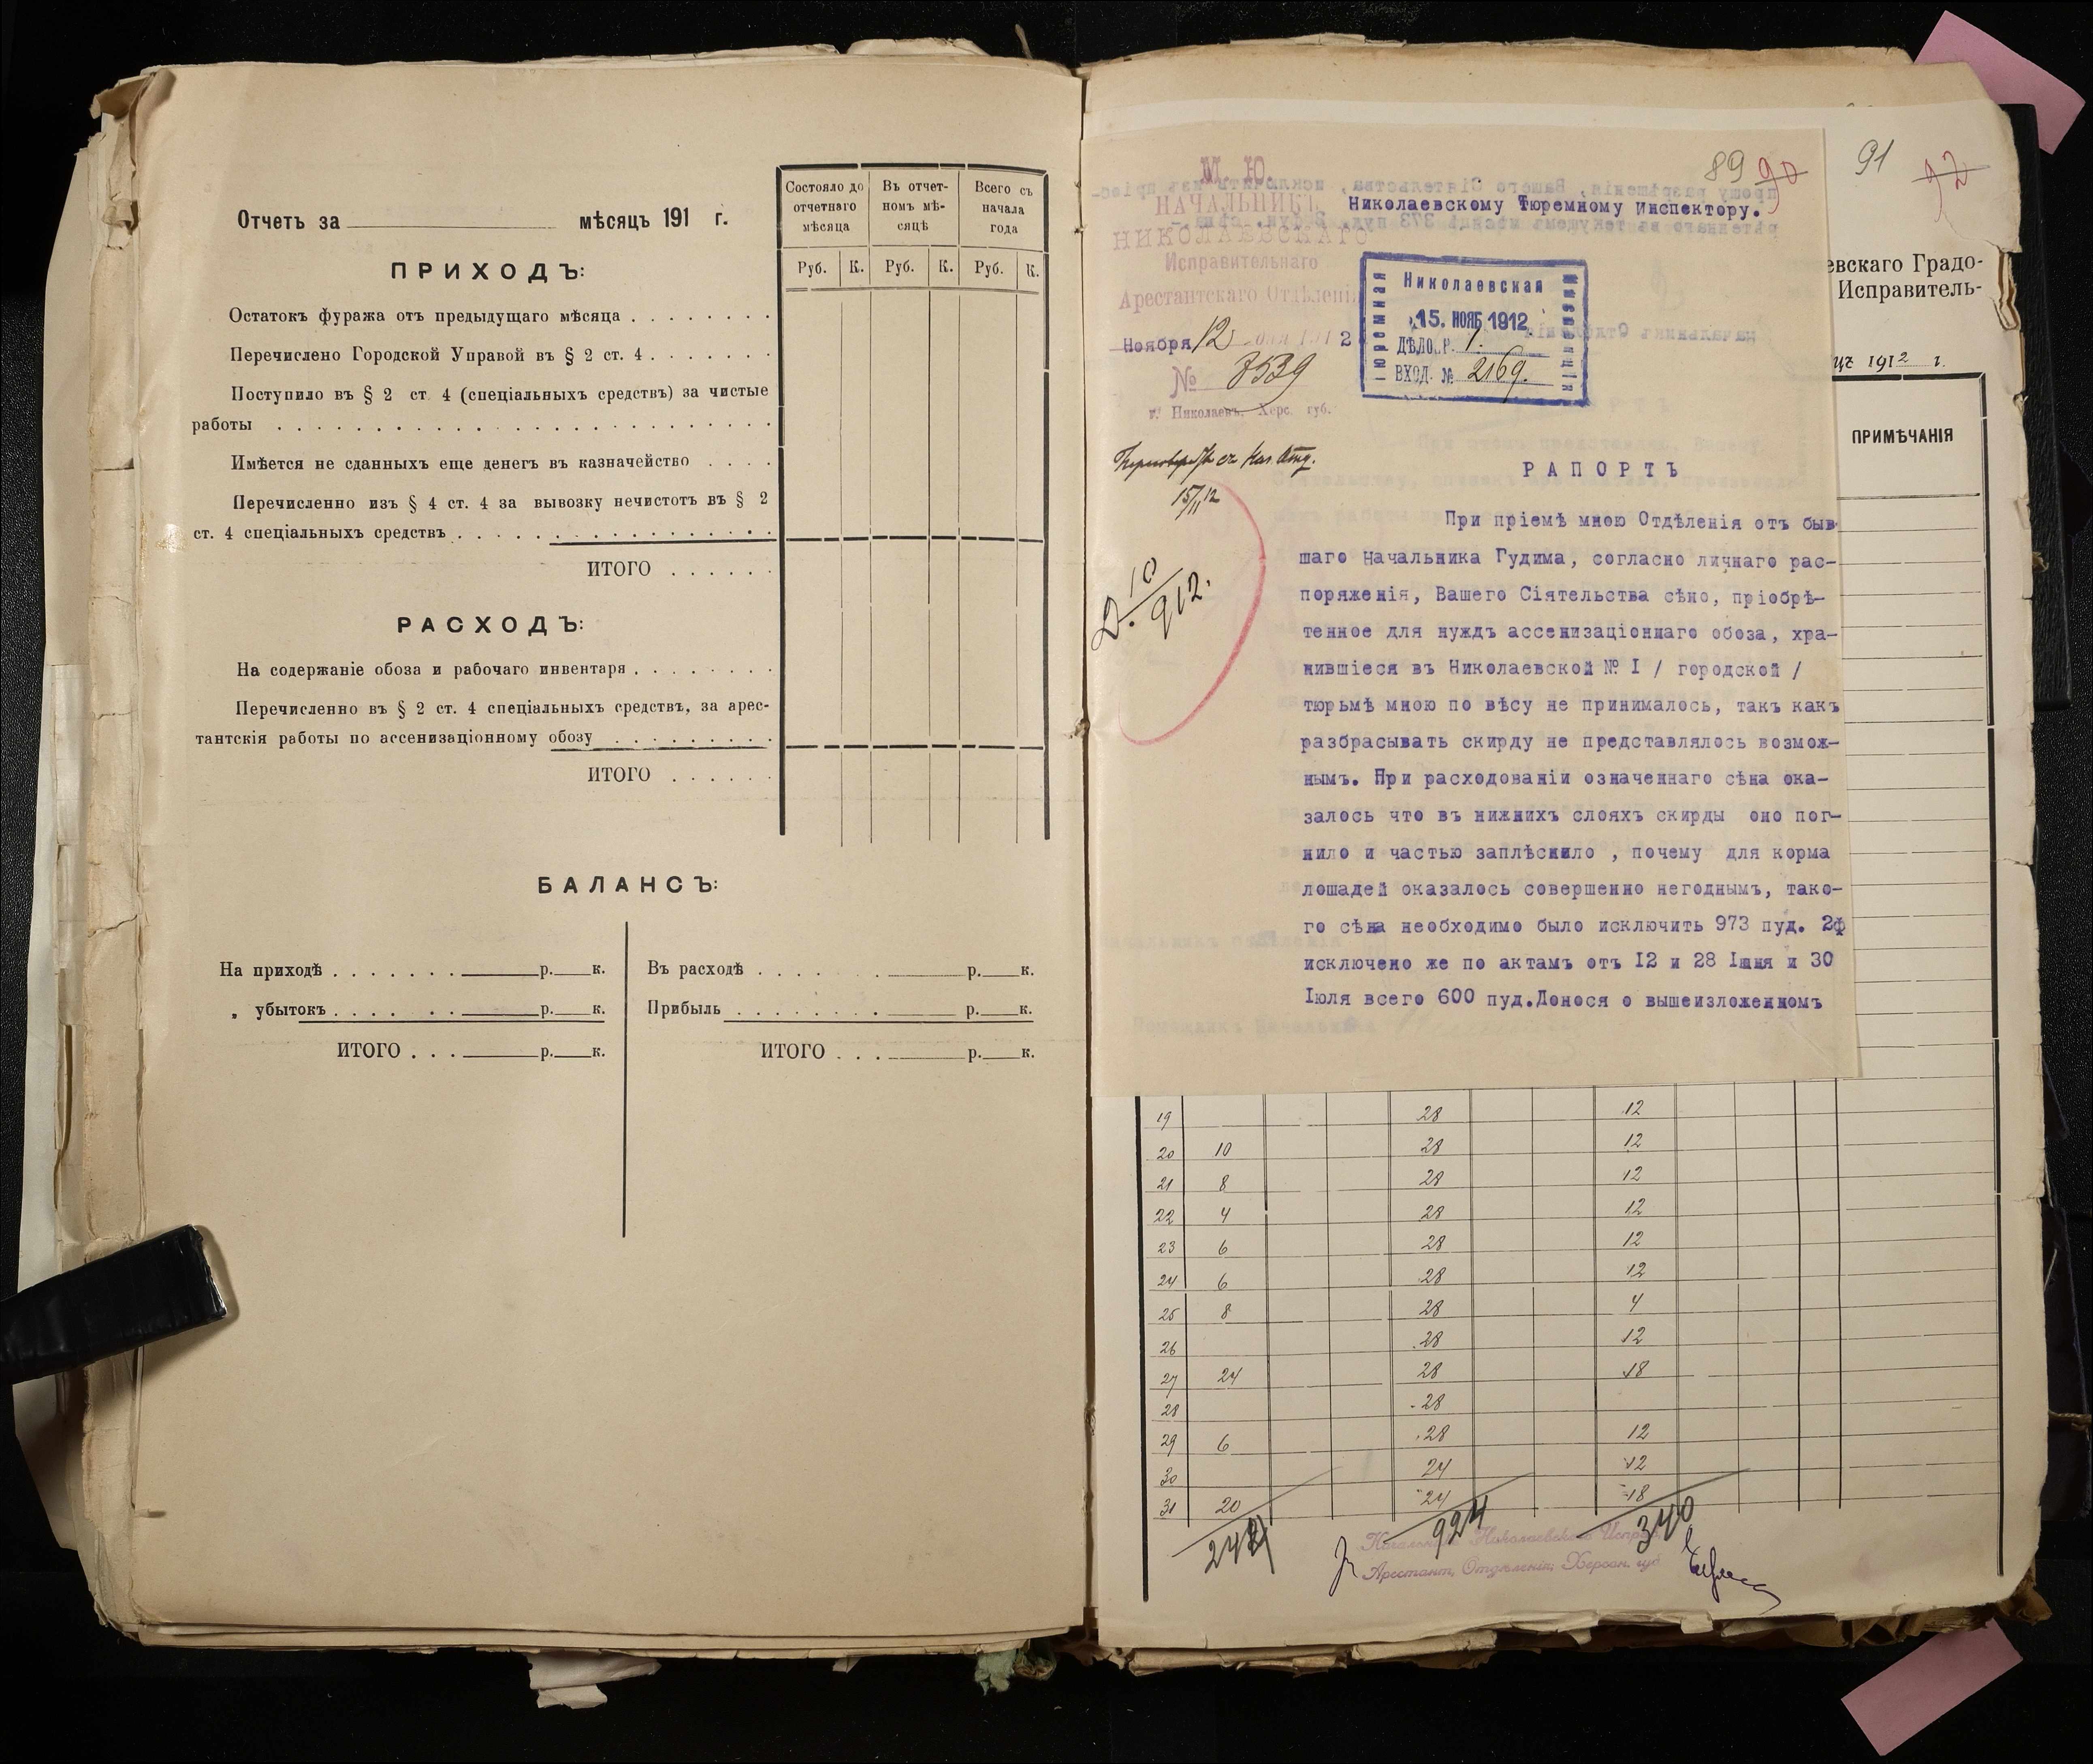 Отчетъ за мѣсяцъ 191 г.
Состояло до отчетнаго мѣсяца
Въ отчет-номъ мѣ-сяцѣ
Всего съ начала года
Руб. К. Руб. К. Руб. К.
ПРИХОДЪ:
Остатокъ фуража отъ предыдущаго мѣсяца . . . . . . . .
Перечислено Городской Управой въ § 2 ст. 4 . . . . . . .
Поступило въ § 2 ст 4 (спеціальныхъ средствъ) за чистые
работы . . . . . . . . . . . . . . . . . . . . . . .
Имѣется не сданныхъ еще денегъ въ казначейство . . . .
Перечисленно изъ § 4 ст. 4 за вывозку нечистотъ въ § 2
ст. 4 спеціальныхъ средствъ . . . . . . . . . . . . . . .
ИТОГО . . . . . .
РАСХОДЪ:
На содержаніе обоза и рабочаго инвентаря . . . . . . . .
Перечисленно въ § 2 ст. 4 спеціальныхъ средствъ, за арес-
тантскія работы по ассенизаціонному обозу . . . . . . . . .
ИТОГО . . . . . .
БАЛАНСЪ:
На приходѣ . . . . . . . р. к.
„ убытокъ . . . . . . . р. к.
ИТОГО . . . р. к.
Въ расходѣ . . . . . . р. к.
Прибыль . . . . . . . . р. к.
ИТОГО . . . р. к.
89 90 91 92
М. Ю.
НАЧАЛЬНИКЪ
НИКОЛАЕВСКАГО
Исправительнаго
Арестантскаго Отдѣленія
Ноября 12 дня 1912
№ 8539
г. Николаевъ, Херс. губ.
Николаевскому Тюремному Инспектору.
Николаевская
Тюремная
Инспекція
15. НОЯБ 1912
ДѢЛО Р. 1.
ВХОД. № 2169.
15/11 12
Д. 10/912.
РАПОРТЪ
При пріемѣ мною Отдѣленія отъ быв-
шаго Начальника Гудима, согласно личнаго рас-
поряженія, Вашего Сіятельства сѣно, пріобрѣ-
тенное для нуждъ ассенизаціоннаго обоза, хра-
нившіеся въ Николаевской № I / городской /
тюрьмѣ мною по вѣсу не принималось, такъ какъ
разбрасывать скирду не представлялось возмож-
нымъ. При расходованіи означеннаго сѣна ока-
залось что въ нижнихъ слояхъ скирды оно пог-
нило и частью заплѣснило , почему для корма
лошадей оказалось совершенно негоднымъ, тако-
го сѣна необходимо было исключить 973 пуд. 2ф
исключено же по актамъ отъ I2 и 28 Іюня и 30
Іюля всего 600 пуд.Донося о вышеизложенномъ
евскаго Градо-
Исправитель-
1912 г.
ПРИМѢЧАНІЯ
19 28 12
20 10 28 12
21 8 28 12
22 4 28 12
23 6 28 12
24 6 28 12
25 8 28 4
26 28 12
27 24 28 18
28 28
29 6 28 12
30 24 12
31 20 24 18
924 340
Начальникъ Николаевскаго Исправ.
Арестант. Отдѣленія, Херсон. губ